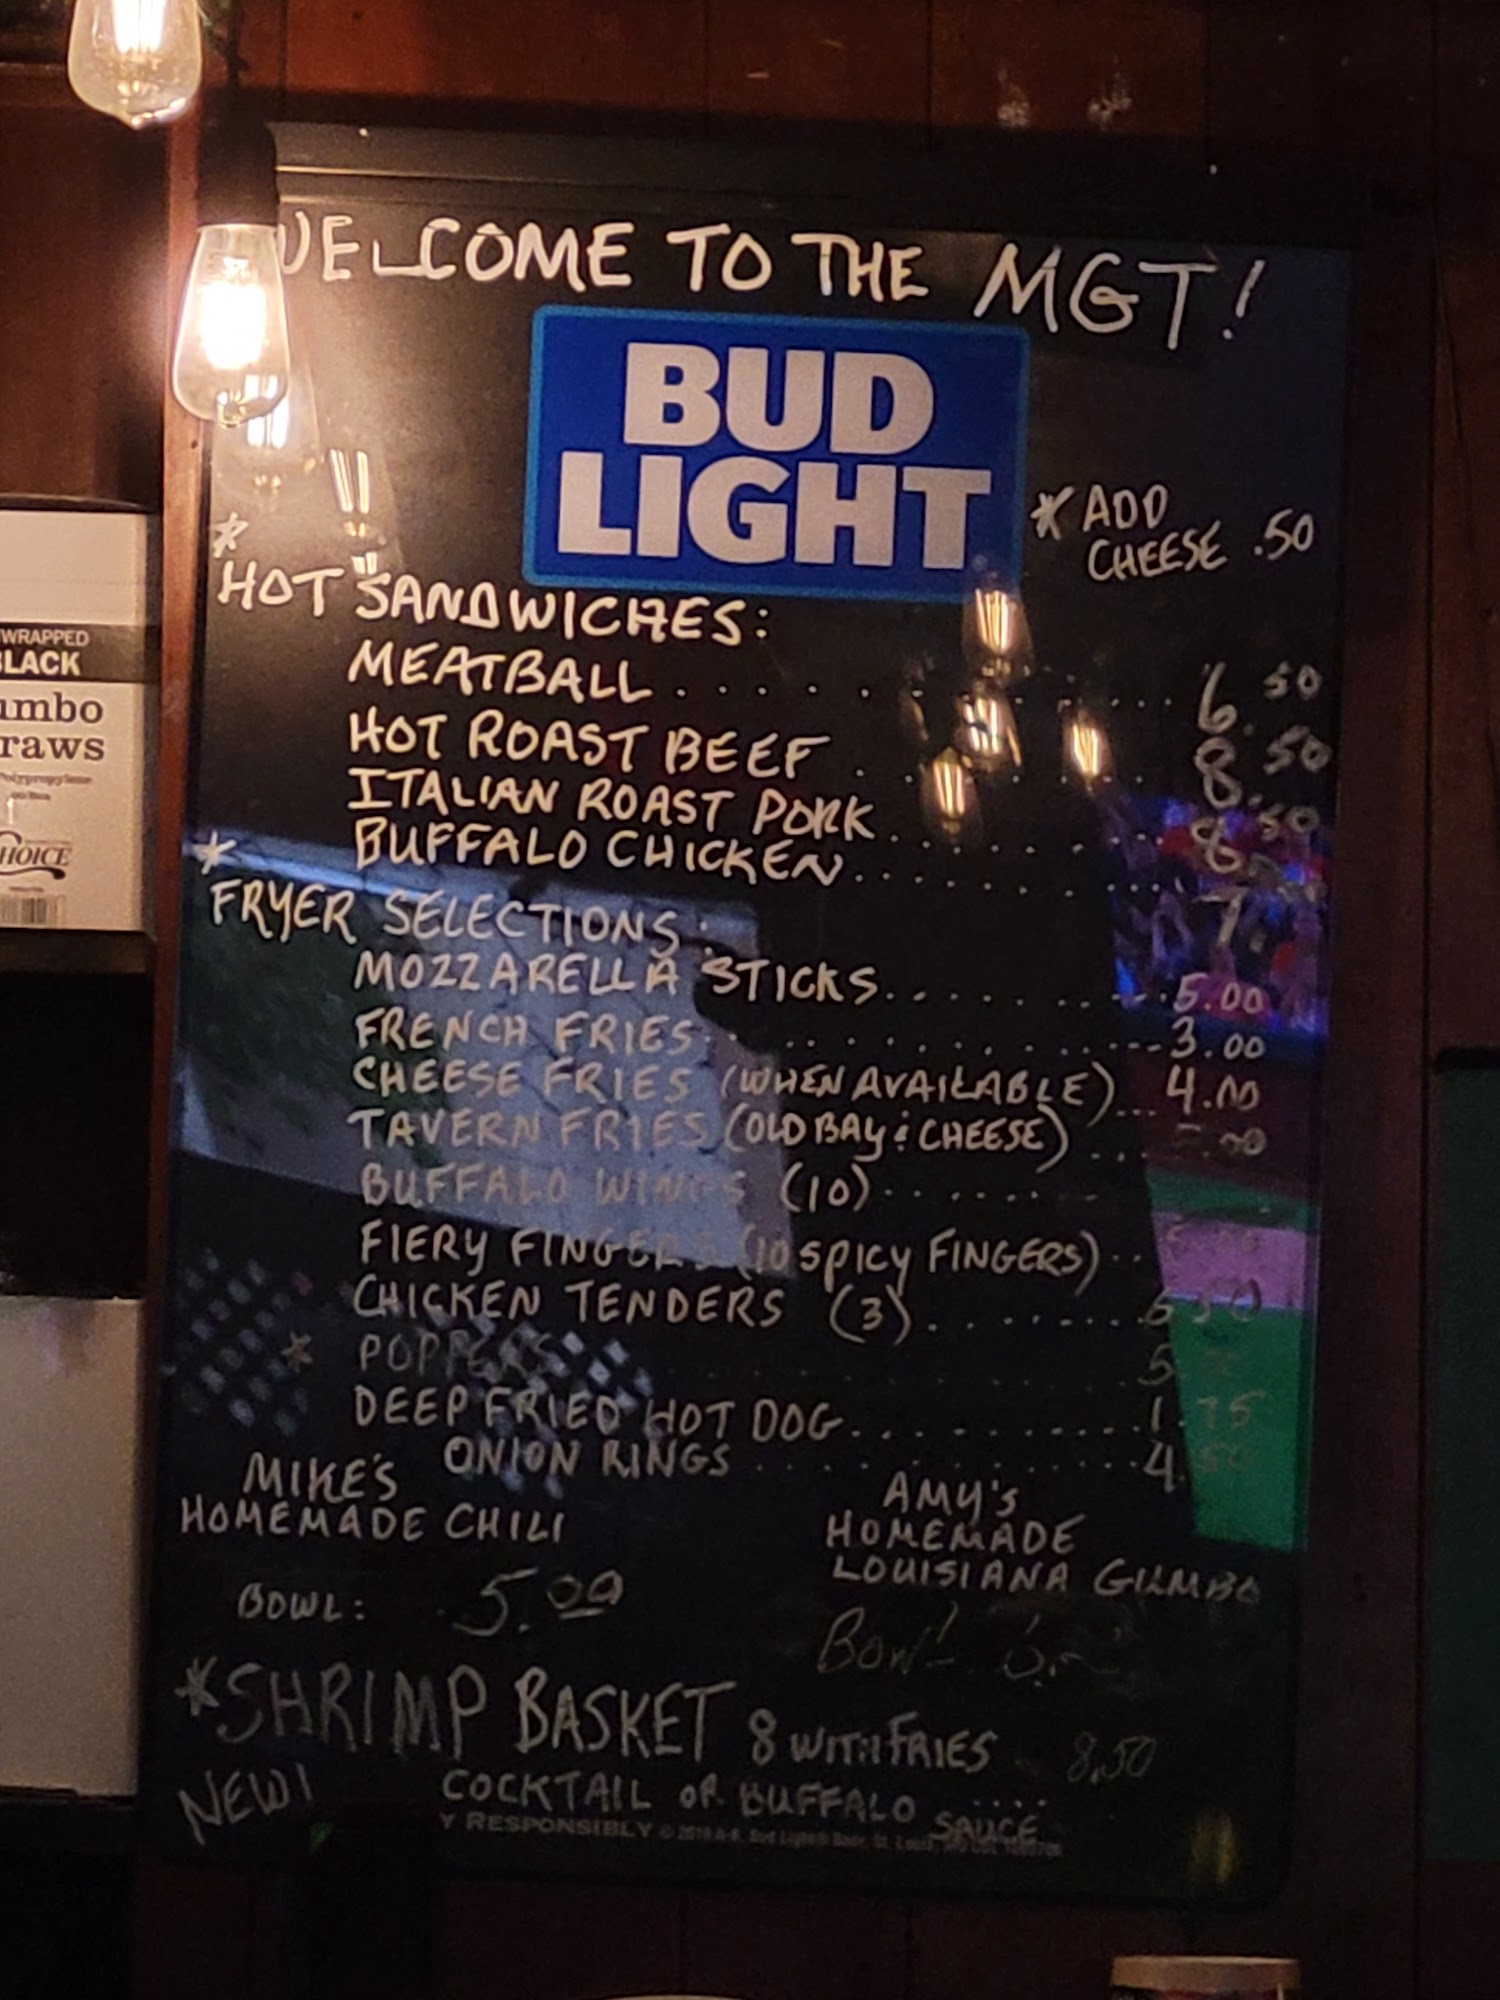 WELCOME TO THE MGT!
BUD
LIGHT
* ADD
CHEESE .50
*
HOT SANDWICHES:
MEATBALL . . . . . . . . . . 6.50
HOT ROAST BEEF . . . . . . . 8.50
ITALIAN ROAST PORK . . . . . . . 8.50
BUFFALO CHICKEN . . . . . . . . 7.
*
FRYER SELECTIONS:
MOZZARELLA STICKS . . . . . . . . . 5.00
FRENCH FRIES . . . . . . . . . . 3.00
CHEESE FRIES (WHEN AVAILABLE) ... 4.00
TAVERN FRIES (OLD BAY & CHEESE) ... 5.00
BUFFALO WINGS (10) . . . . . .
FIERY FINGERS (10 SPICY FINGERS) . .
CHICKEN TENDERS (3) . . . . . . . . 6.50
* POPPERS . . . . . . . . 5
DEEP FRIED HOT DOG . . . . . . . . . . 1.75
ONION RINGS . . . . . . . . . . 4.50
MIKE'S
HOMEMADE CHILI
BOWL: 5.00
AMY'S
HOMEMADE
LOUISIANA GUMBO
Bowl
* SHRIMP BASKET 8 WITH FRIES 8.50
NEW! COCKTAIL OR BUFFALO SAUCE ....
Y RESPONSIBLY
WRAPPED
BLACK
umbo
raws
HOICE